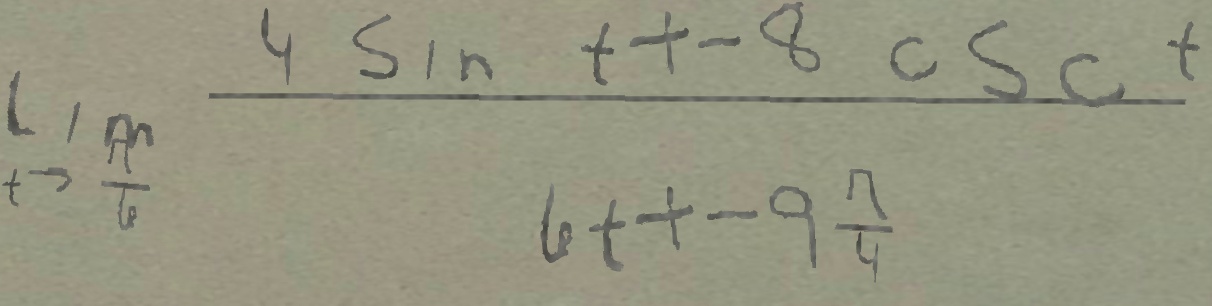 \lim_{t \to \frac{\pi}{6}} \frac{4 \sin t + -8 \csc t}{6t + -9 \frac{\pi}{4}}